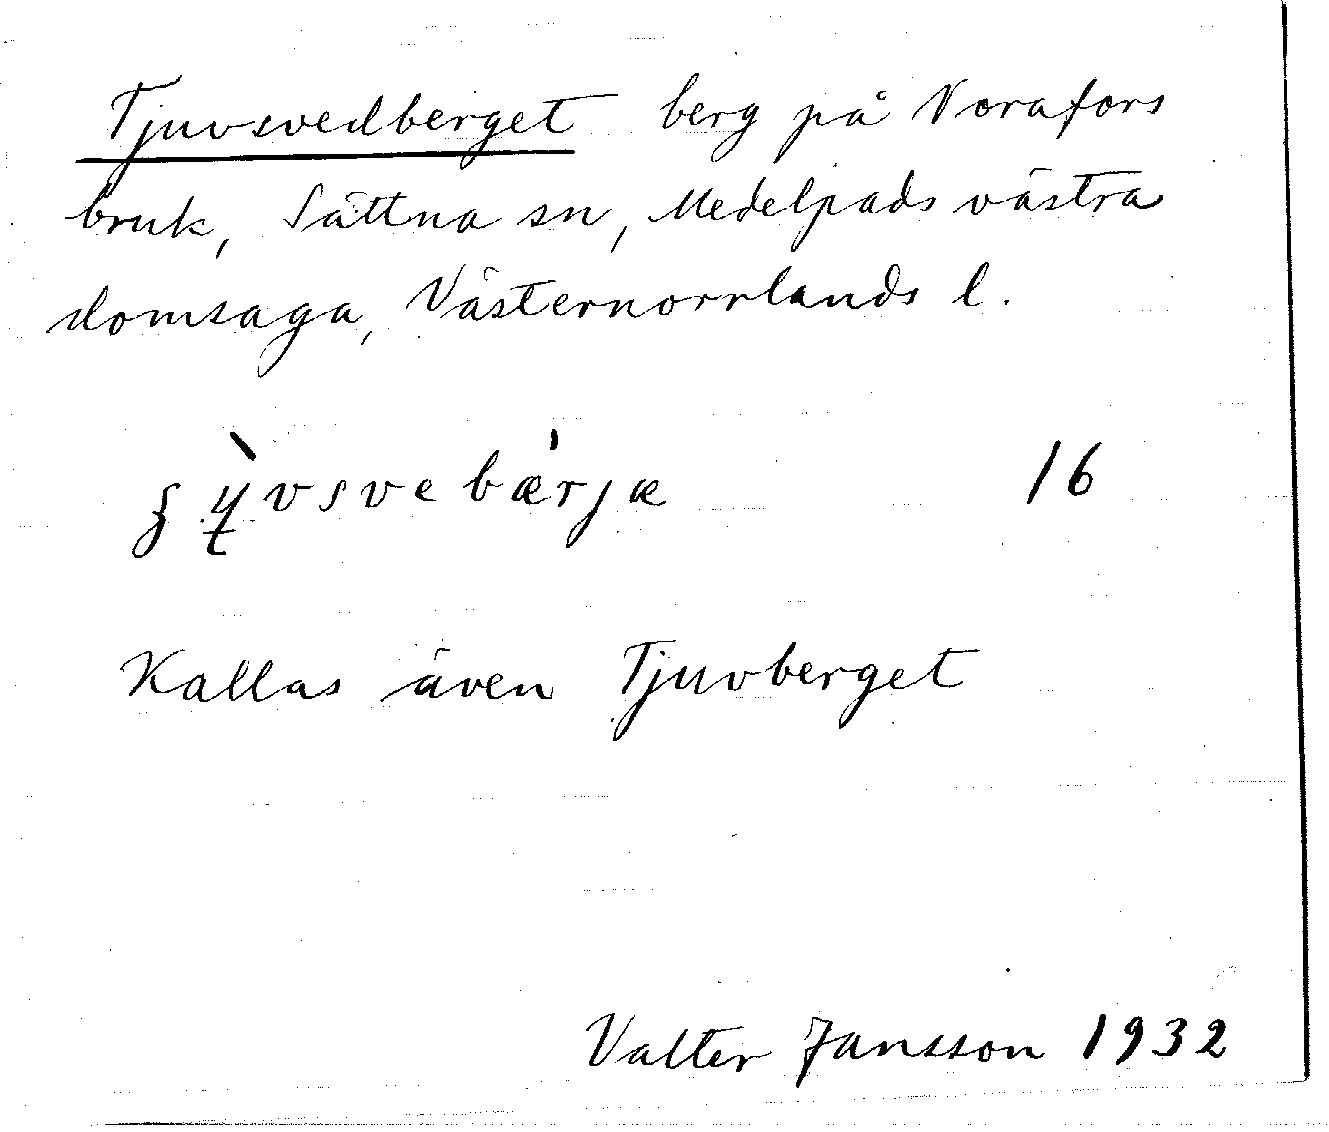 Tjuvsvedberget berg på Norafors
bruk, Sättna sn, Medelpads västra
domsaga, Västernorrlands l.
16
Kallas även Tjuvberget
Valter Jansson 1932